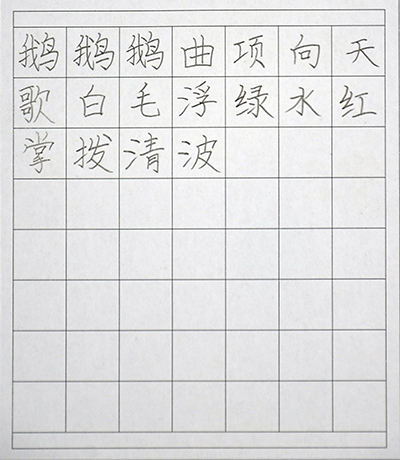 鹅鹅鹅曲项向天
歌白毛浮绿水红
掌拨清波